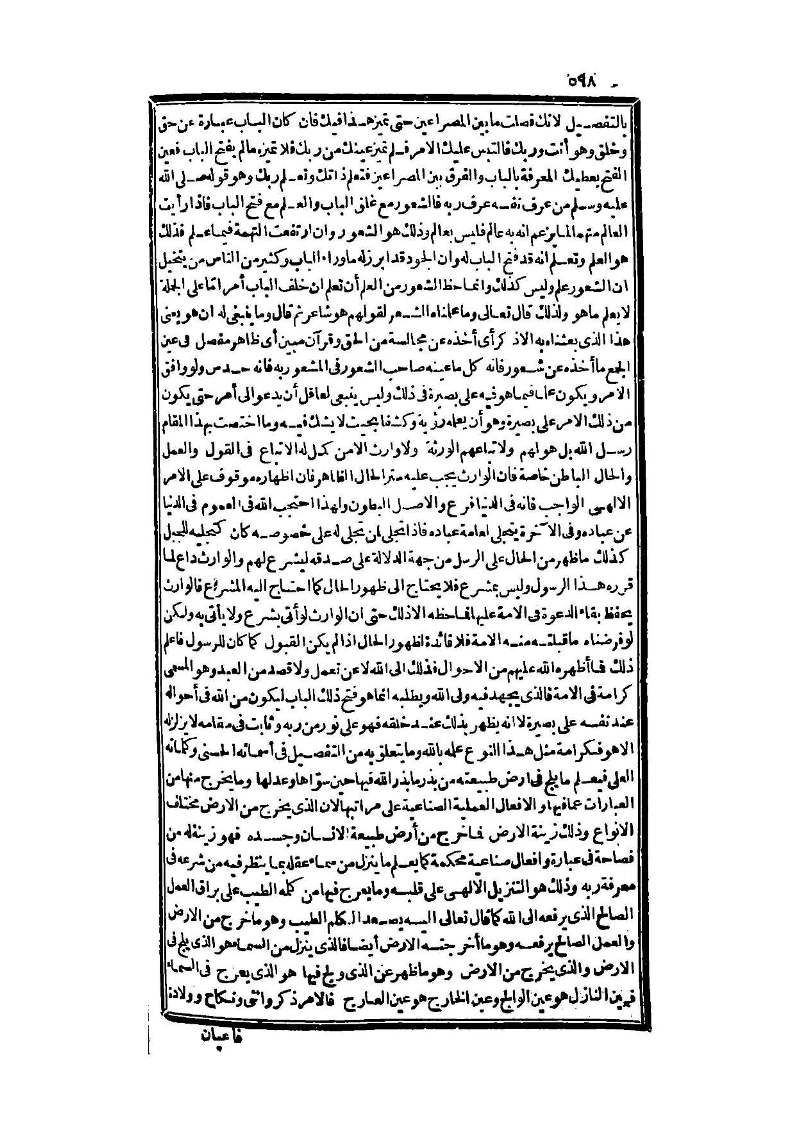 ٥٩٨
بالتفصيل لانك فصلت ما بين المصراعين حتى تميز هذا فيك فان كان الباب عبارة عن حق
وخلق وهو أنت وربك فالتبس عليك الامر فلم تميز عينك من ربك فلا تميزه مالم يفتح الباب فعين
الفتح يعطيك المعرفة بالباب والفرق بين المصراعين فتعلم ذاتك وتعلم ربك وهو قوله صلى الله
عليه وسلم من عرف نفسه عرف ربه فالشعور مع غلق الباب والعلم مع فتح الباب فاذا رأيت
العالم متهما لما يزعم انه به عالم فليس بعالم وذلك هو الشعور وان ارتفعت التهمة فيما علم فذلك
هو العلم وتعلم انه قد فتح الباب له وان الجود قد ابرز له ما وراء الباب وكثير من الناس من يتخيل
ان الشعور علم وليس كذلك وانما حظ الشعور من العلم أن تعلم ان خلف الباب أمرا ما على الجملة
لا يعلم ما هو ولذلك قال تعالى وما علمناه الشعر لقولهم هو شاعر ثم قال وما ينبغى له ان هو يعنى
هذا الذى بعثناه به الا ذكر أى أخذه عن مجالسة من الحق وقرآن مبين أى ظاهر مفصل فى عين
الجمع ما أخذه عن شعور فانه كل ما عينه صاحب الشعور فى المشعور به فانه حدس ولو وافق
الامر ويكون علما فيما هو فيه على بصيرة فى ذلك وليس ينبغى لعاقل أن يدعو الى أمر حتى يكون
من ذلك الامر على بصيرة وهو أن يعلمه رؤية وكشفا بحيث لا يشك فيه وما اختصت بهذا المقام
رسل الله بل هو لهم ولاتباعهم الورثة ولا وارث الا من كمل له الاتباع فى القول والعمل
والحال الباطن خاصة فان الوارث يجب عليه ستر الحال الظاهر فان اظهاره موقوف على الامر
الالهى الواجب فانه فى الدنيا فرع والاصل البطون ولهذا احتجب الله فى العموم فى الدنيا
عن عباده وفى الآخرة يتجلى لعامة عباده فاذا تجلى لمن تجلى له على خصوصه كان كتجليه للجبل
كذلك ما ظهر من الحال على الرسل من جهة الدلالة على صدقه ليشرع لهم والوارث داع لما
قرره هذا الرسول وليس بمشرع فلا يحتاج الى ظهور الحال كما احتاج اليه المشرع فالوارث
يحفظ بقاء الدعوة فى الامة عليها فما حظه الا ذلك حتى ان الوارث لو أتى بشرع ولا يأتى به ولكن
لو فرضناه ما قبلته منه الامة فلا فائدة لظهور الحال اذا لم يكن القبول كما كان للرسول فاعلم
ذلك فما أظهره الله عليهم من الاحوال فذلك الى الله لا عن تعمل ولا قصد من العبد وهو المسمى
كرامة فى الامة فالذى يجهد فيه ولى الله ويطلبه انما هو فتح ذلك الباب ليكون من الله فى أحواله
عند نفسه على بصيرة لا انه يظهر بذلك عند خلقه فهو على نور من ربه وثابت فى مقامه لا يزلزله
الا هو فكرامة مثل هذا النوع علمه بالله وما يتعلق به من التفصيل فى أسمائه الحسنى وكلماته
العلى فيعلم ما يلج فى ارض طبيعته من بذر ما بذر الله فيها حين سواها وعدلها وما يخرج منها من
العبارات عما فيها والافعال العملية الصناعية على مراتبها لان الذى يخرج من الارض مختلف
الانواع وذلك زينة الارض فما خرج من أرض طبيعة الانسان وجسده فهو زينة له من
فصاحة فى عبارة وافعال صناعية محكمة كما يعلم ما ينزل من سماء عقله بما ينظر فيه من شرعه فى
معرفة ربه وذلك هو التنزيل الالهى على قلبه وما يعرج فيها من كلمه الطيب على براق العمل
الصالح الذى يرفعه الى الله كما قال تعالى اليه يصعد الكلم الطيب وهو ما خرج من الارض
والعمل الصالح يرفعه وهو ما أخرجته الارض أيضا فالذى ينزل من السماء هو الذى يلج فى
الارض والذى يخرج من الارض وهو ما ظهر عن الذى ولج فيها هو الذى يعرج فى السماء
فعين النازل هو عين الوالج وعين الخارج هو عين العارج فالامر ذكر وانثى ونكاح وولادة
فاعيان